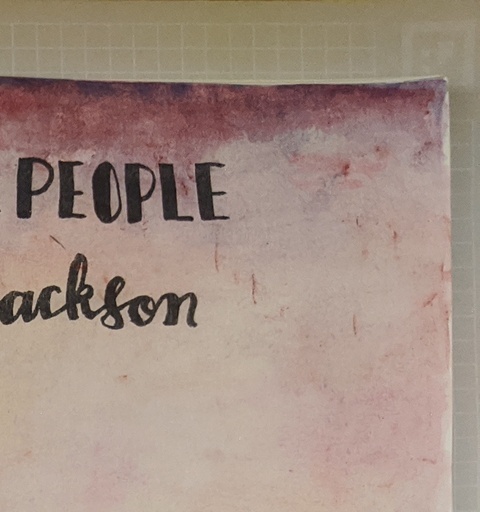 PEOPLE
ackson